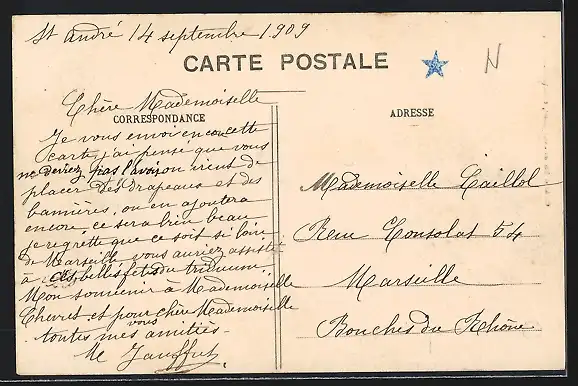 St André 14 septembre 1909
CARTE POSTALE
N
Chère Mademoiselle
CORRESPONDANCE
Je vous envoi encore cette
carte, j'ai pensé que vous
ne deviez pas l'avoir on vient de
placer des drapeaux et des
bannières, on en ajoutera
encore, ce sera bien beau
je regrette que ce soit si loin
de Marseille vous auriez assisté
à ces belles fetes du triduum.
Mon souvenir à Mademoiselle
Chevret et pour chère Mademoiselle
vous
toutes mes amitiés
ADRESSE
Mademoiselle Caillol
Rue Consolat 54
Marseille
Bouches du Rhône